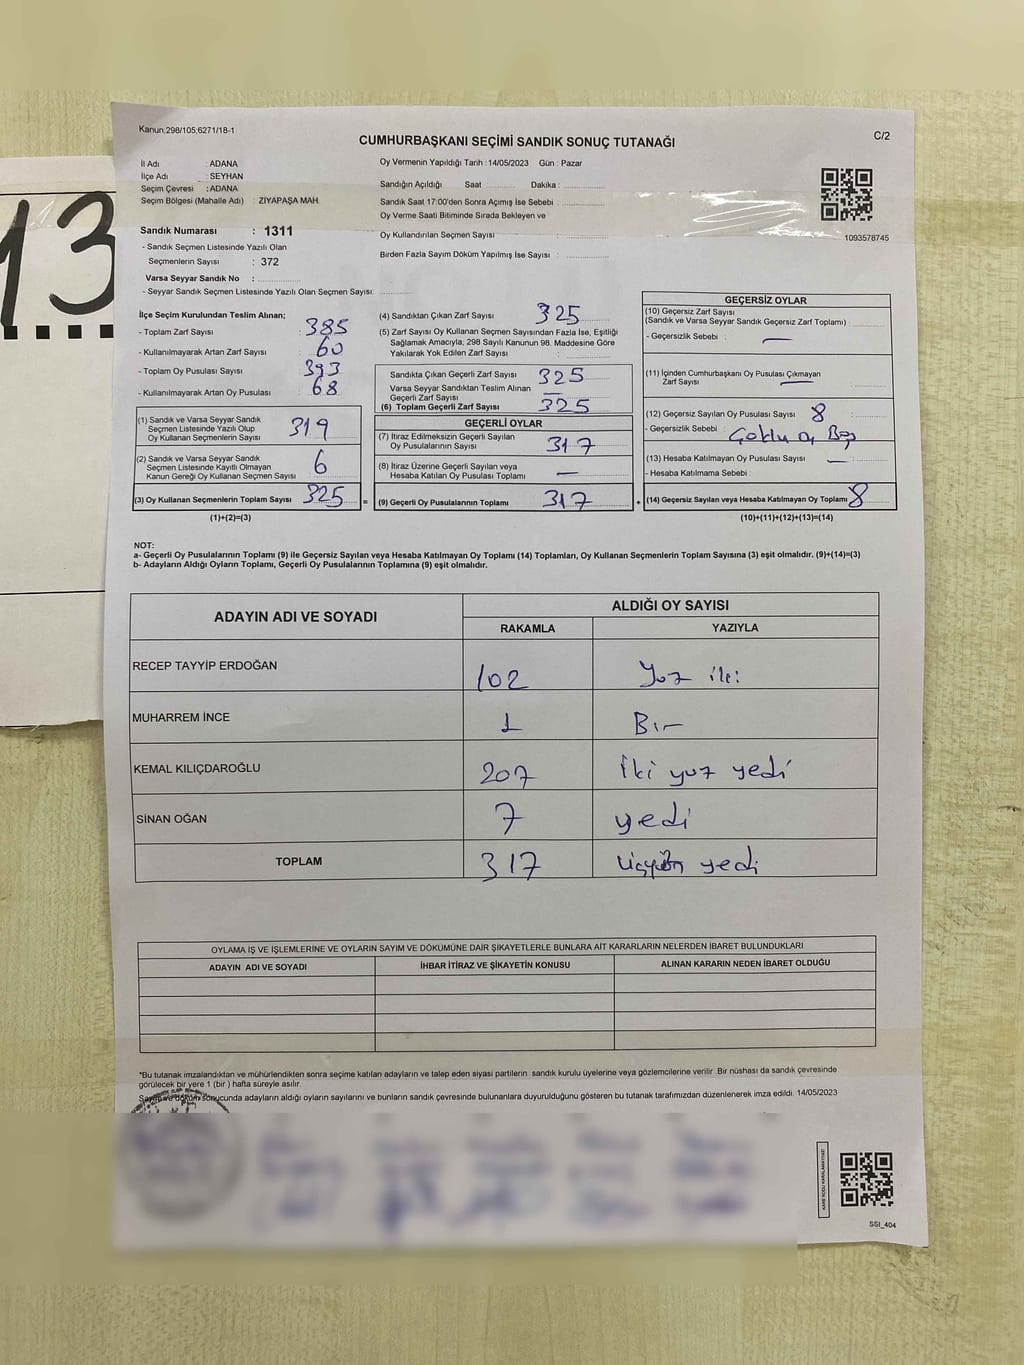 Kanun;298/105;6271/18-1
C/2
CUMHURBAŞKANI SEÇİMİ SANDIK SONUÇ TUTANAĞI
İl Adı : ADANA
İlçe Adı : SEYHAN
Seçim Çevresi : ADANA
Seçim Bölgesi (Mahalle Adı) : ZİYAPAŞA MAH.
Sandık Numarası : 1311
- Sandık Seçmen Listesinde Yazılı Olan
Seçmenlerin Sayısı : 372
Varsa Seyyar Sandık No :
- Seyyar Sandık Seçmen Listesinde Yazılı Olan Seçmen Sayısı:
Oy Vermenin Yapıldığı Tarih : 14/05/2023 Gün : Pazar
Sandığın Açıldığı Saat Dakika :
Sandık Saat 17:00'den Sonra Açımış İse Sebebi :
Oy Verme Saati Bitiminde Sırada Bekleyen ve
Oy Kullandırılan Seçmen Sayısı
Birden Fazla Sayım Döküm Yapılmış İse Sayısı :
1093578745
13
İlçe Seçim Kurulundan Teslim Alınan;
- Toplam Zarf Sayısı 385
- Kullanılmayarak Artan Zarf Sayısı 60
- Toplam Oy Pusulası Sayısı 393
- Kullanılmayarak Artan Oy Pusulası 68
(1) Sandık ve Varsa Seyyar Sandık
Seçmen Listesinde Yazılı Olup
Oy Kullanan Seçmenlerin Sayısı 319
(2) Sandık ve Varsa Seyyar Sandık
Seçmen Listesinde Kayıtlı Olmayan
Kanun Gereği Oy Kullanan Seçmen Sayısı 6
(3) Oy Kullanan Seçmenlerin Toplam Sayısı 325 =
(1)+(2)=(3)
(4) Sandıktan Çıkan Zarf Sayısı 325
(5) Zarf Sayısı Oy Kullanan Seçmen Sayısından Fazla İse, Eşitliği
Sağlamak Amacıyla; 298 Sayılı Kanunun 98. Maddesine Göre
Yakılarak Yok Edilen Zarf Sayısı :
Sandıkta Çıkan Geçerli Zarf Sayısı 325
Varsa Seyyar Sandıktan Teslim Alınan
Geçerli Zarf Sayısı —
(6) Toplam Geçerli Zarf Sayısı 325
GEÇERLİ OYLAR
(7) İtiraz Edilmeksizin Geçerli Sayılan
Oy Pusulalarının Sayısı 317
(8) İtiraz Üzerine Geçerli Sayılan veya
Hesaba Katılan Oy Pusulası Toplamı —
(9) Geçerli Oy Pusulalarının Toplamı 317 +
GEÇERSİZ OYLAR
(10) Geçersiz Zarf Sayısı
(Sandık ve Varsa Seyyar Sandık Geçersiz Zarf Toplamı)
- Geçersizlik Sebebi : —
(11) İçinden Cumhurbaşkanı Oy Pusulası Çıkmayan
Zarf Sayısı —
(12) Geçersiz Sayılan Oy Pusulası Sayısı 8
- Geçersizlik Sebebi :
(13) Hesaba Katılmayan Oy Pusulası Sayısı —
- Hesaba Katılmama Sebebi :
(14) Geçersiz Sayılan veya Hesaba Katılmayan Oy Toplamı 8
(10)+(11)+(12)+(13)=(14)
NOT:
a- Geçerli Oy Pusulalarının Toplamı (9) ile Geçersiz Sayılan veya Hesaba Katılmayan Oy Toplamı (14) Toplamları, Oy Kullanan Seçmenlerin Toplam Sayısına (3) eşit olmalıdır. (9)+(14)=(3)
b- Adayların Aldığı Oyların Toplamı, Geçerli Oy Pusulalarının Toplamına (9) eşit olmalıdır.
ADAYIN ADI VE SOYADI ALDIĞI OY SAYISI
RAKAMLA YAZIYLA
RECEP TAYYİP ERDOĞAN 102 Yüz iki
MUHARREM İNCE 1 Bir
KEMAL KILIÇDAROĞLU 207 İki yüz yedi
SİNAN OĞAN 7 yedi
TOPLAM 317 yedi
OYLAMA İŞ VE İŞLEMLERİNE VE OYLARIN SAYIM VE DÖKÜMÜNE DAİR ŞİKAYETLERLE BUNLARA AİT KARARLARIN NELERDEN İBARET BULUNDUKLARI
ADAYIN ADI VE SOYADI İHBAR İTİRAZ VE ŞİKAYETİN KONUSU ALINAN KARARIN NEDEN İBARET OLDUĞU
*Bu tutanak imzalandıktan ve mühürlendikten sonra seçime katılan adayların ve talep eden siyasi partilerin sandık kurulu üyelerine veya gözlemcilerine verilir. Bir nüshası da sandık çevresinde
görülecek bir yere 1 (bir ) hafta süreyle asılır.
Sayım ve döküm sonucunda adayların aldığı oyların sayılarını ve bunların sandık çevresinde bulunanlara duyurulduğunu gösteren bu tutanak tarafımızdan düzenlenerek imza edildi. 14/05/2023
KARE KODU KARALAMAYINIZ!
SSI_404